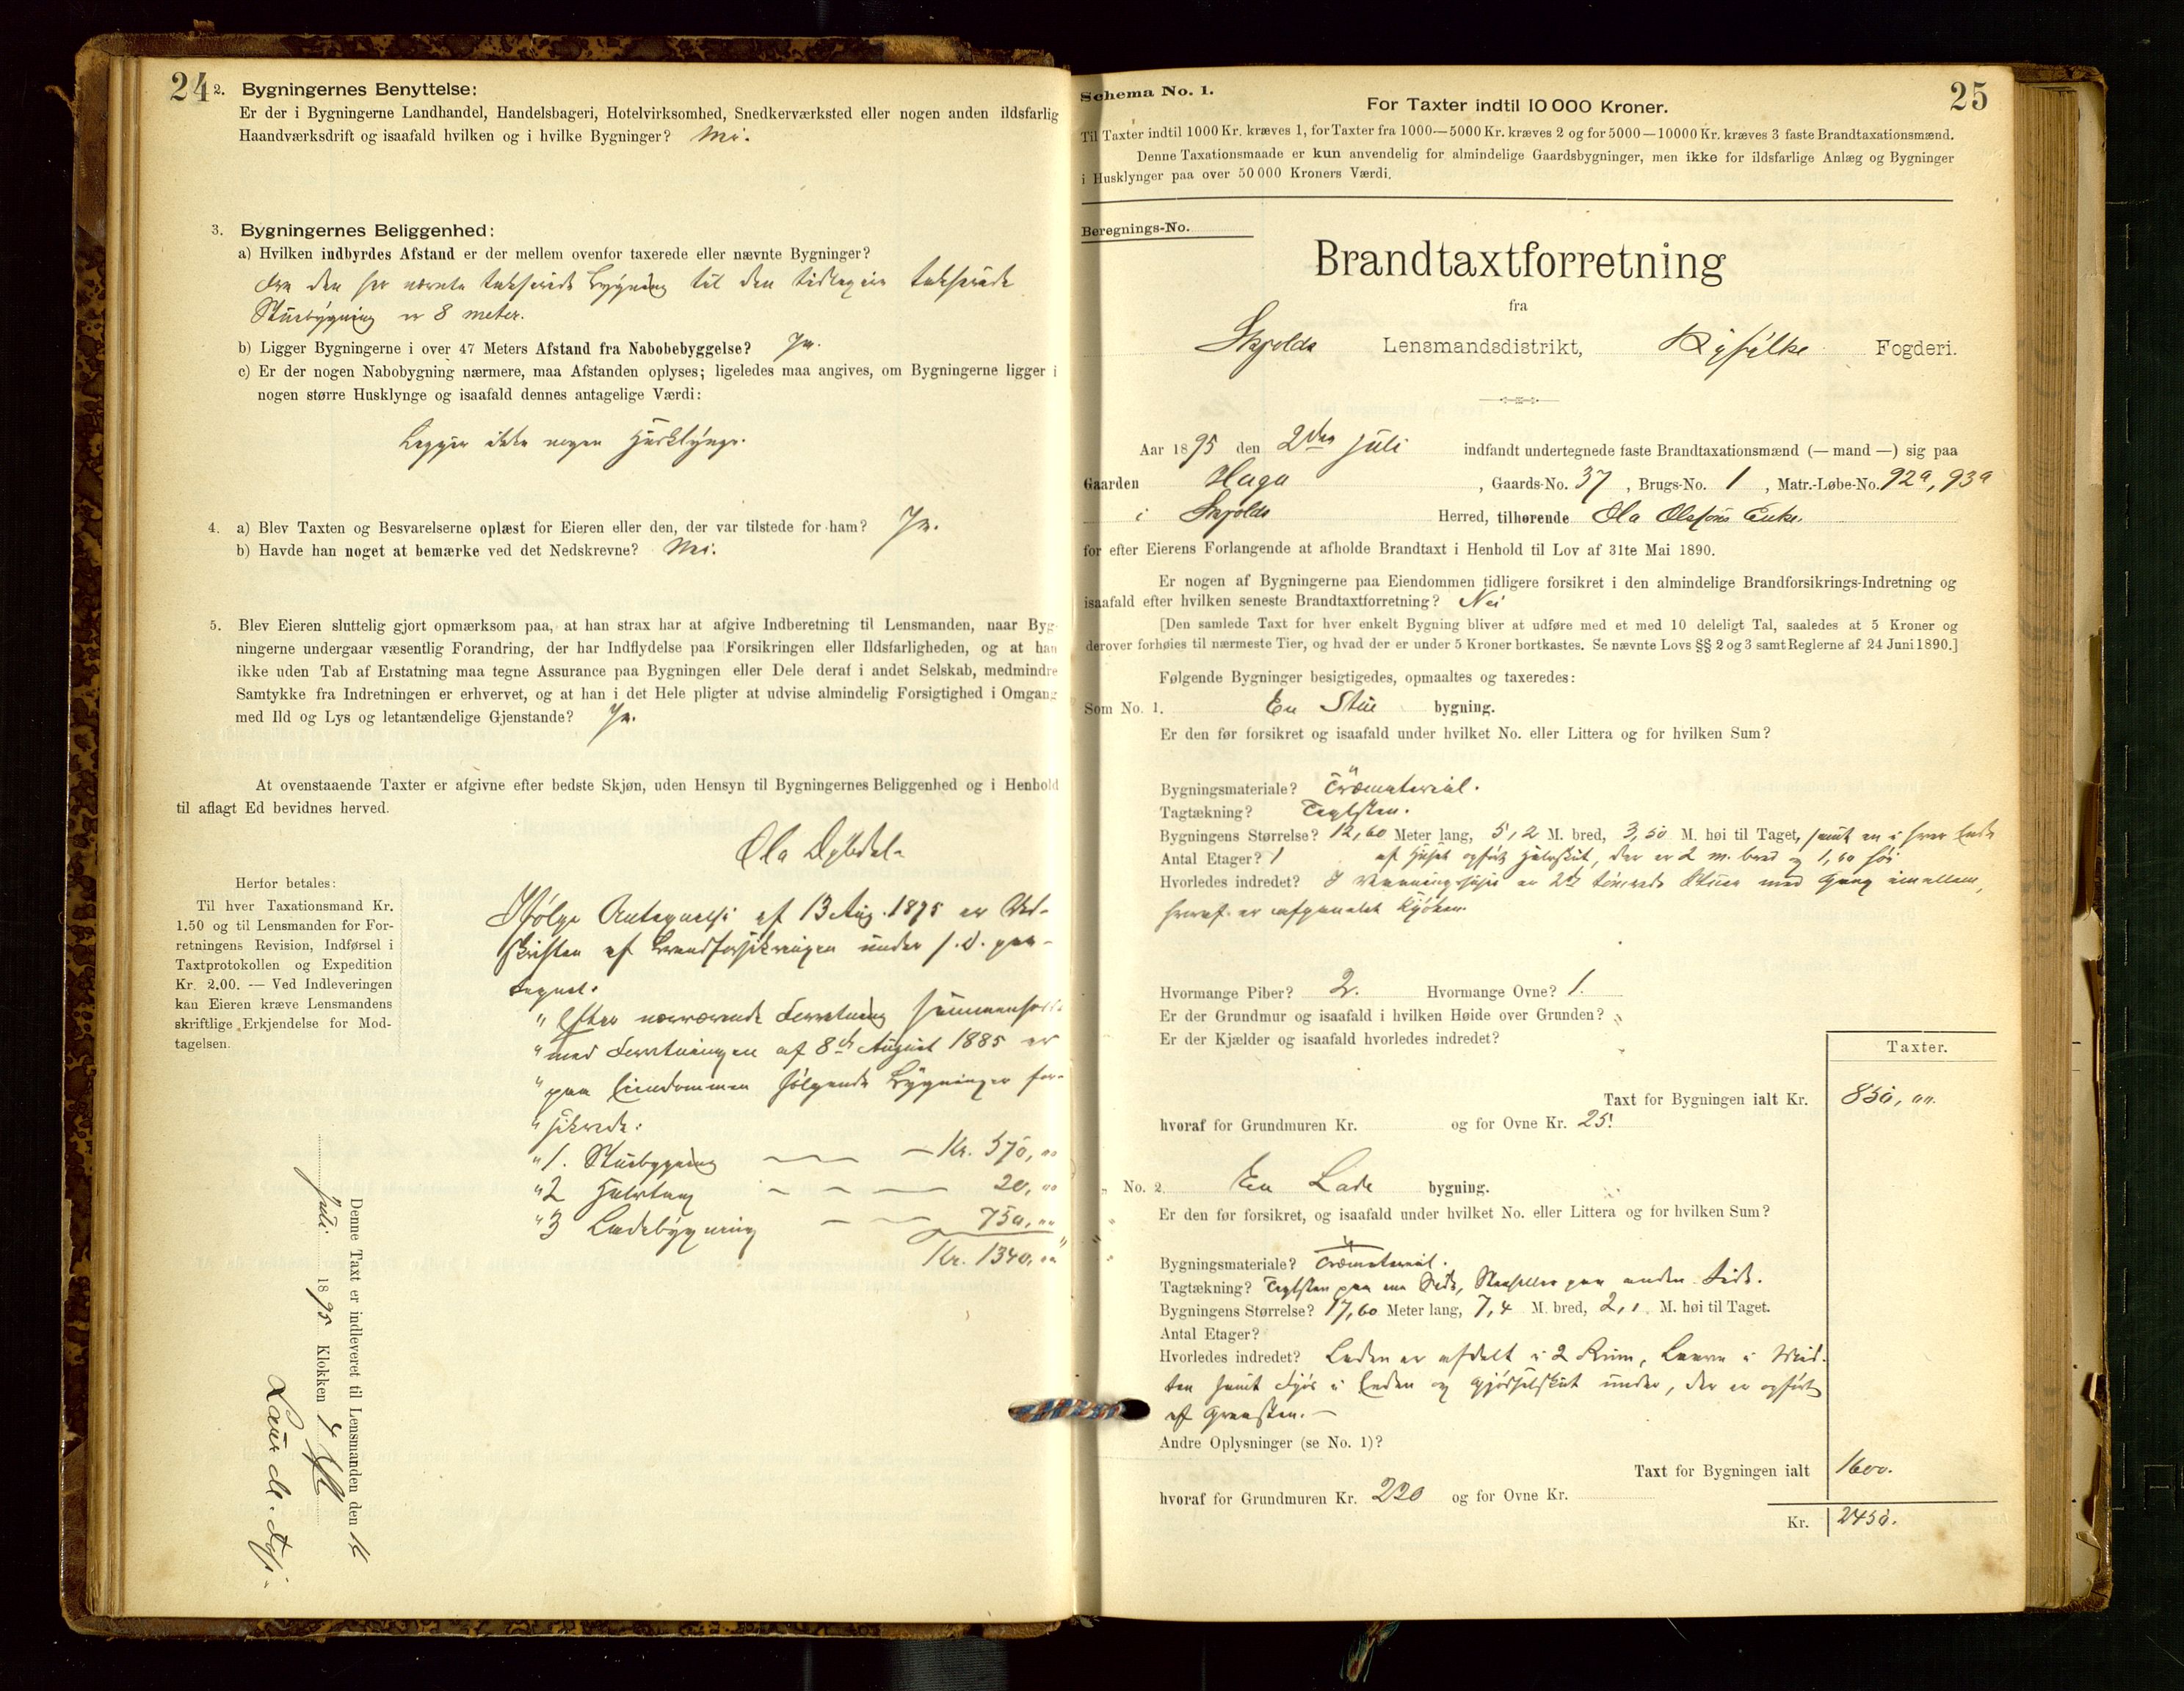 24
2. Bygningernes Benyttelse:
Er der i Bygningerne Landhandel, Handelsbageri, Hotelvirksomhed, Snedkerværksted eller nogen anden ildsfarlig
Haandværksdrift og isaafald hvilken og i hvilke Bygninger? Nei.
3. Bygningernes Beliggenhed:
a) Hvilken indbyrdes Afstand er der mellem ovenfor taxerede eller nævnte Bygninger?
Fra den her nævnte takserede Bygning til den tidligere takserede
Stuebygning er 8 meter.
b) Ligger Bygningerne i over 47 Meters Afstand fra Nabobebyggelse? Ja.
c) Er der nogen Nabobygning nærmere, maa Afstanden oplyses; ligeledes maa angives, om Bygningerne ligger i
nogen større Husklynge og isaafald dennes antagelige Værdi:
Ligger ikke nogen Husklynge.
4. a) Blev Taxten og Besvarelserne oplæst for Eieren eller den, der var tilstede for ham? Ja.
b) Havde han noget at bemærke ved det Nedskrevne? Nei.
5. Blev Eieren sluttelig gjort opmærksom paa, at han strax har at afgive Indberetning til Lensmanden, naar Byg-
ningerne undergaar væsentlig Forandring, der har Indflydelse paa Forsikringen eller Ildsfarligheden, og at han
ikke uden Tab af Erstatning maa tegne Assurance paa Bygningen eller Dele deraf i andet Selskab, medmindre
Samtykke fra Indretningen er erhvervet, og at han i det Hele pligter at udvise almindelig Forsigtighed i Omgang
med Ild og Lys og letantændelige Gjenstande? Ja.
At ovenstaaende Taxter er afgivne efter bedste Skjøn, uden Hensyn til Bygningernes Beliggenhed og i Henhold
til aflagt Ed bevidnes herved.
Ola Dybdal
Herfor betales:
Til hver Taxationsmand Kr.
1.50 og til Lensmanden for For-
retningens Revision, Indførsel i
Taxtprotokollen og Expedition
Kr. 2.00. — Ved Indleveringen
kan Eieren kræve Lensmandens
skriftlige Erkjendelse for Mod-
tagelsen.
Ifølge Antegnelse af 13 Aug. 1895 er Ved-
skriften af Brandforsikringen under s. d. paa-
tegnet.
" Efter nærværende Forretning sammenholdt
" med Forretningen af 8de August 1885 er
" paa Eiendommen følgende Bygninger for-
" sikrede:
" 1. Stuebygning — Kr. 570,00
" 2 — 20,00
" 3 Ladebygning — 750,00
Kr. 1340,00 "
Denne Taxt er indleveret til Lensmanden den 12
Juli 1895 Klokken 4 Eft
25
Schema No. 1.
For Taxter indtil 10 000 Kroner.
Til Taxter indtil 1000 Kr. kræves 1, for Taxter fra 1000—5000 Kr. kræves 2 og for 5000—10000 Kr. kræves 3 faste Brandtaxationsmænd.
Denne Taxationsmaade er kun anvendelig for almindelige Gaardsbygninger, men ikke for ildsfarlige Anlæg og Bygninger
i Husklynger paa over 50 000 Kroners Værdi.
Beregnings-No.
Brandtaxtforretning
fra
Skjolds Lensmandsdistrikt, Ryfylke Fogderi.
Aar 1895 den 2den Juli indfandt undertegnede faste Brandtaxationsmænd (— mand —) sig paa
Gaarden Haga, Gaards-No. 37, Brugs-No. 1, Matr.-Løbe-No. 92a, 93a
i Skjolds Herred, tilhørende Ola Olsens Enke.
for efter Eierens Forlangende at afholde Brandtaxt i Henhold til Lov af 31te Mai 1890.
Er nogen af Bygningerne paa Eiendommen tidligere forsikret i den almindelige Brandforsikrings-Indretning og
isaafald efter hvilken seneste Brandtaxtforretning? Nei
[Den samlede Taxt for hver enkelt Bygning bliver at udføre med et med 10 deleligt Tal, saaledes at 5 Kroner og
derover forhøies til nærmeste Tier, og hvad der er under 5 Kroner bortkastes. Se nævnte Lovs §§ 2 og 3 samt Reglerne af 24 Juni 1890.]
Følgende Bygninger besigtigedes, opmaaltes og taxeredes:
Som No. 1. En Stue bygning.
Er den før forsikret og isaafald under hvilket No. eller Littera og for hvilken Sum?
"
Bygningsmateriale? Træmaterial.
Tagtækning? Teglsten.
Bygningens Størrelse? 12,60 Meter lang, 5,2 M. bred, 3,50 M. høi til Taget, samt en i hver Ende
Antal Etager? 1 af Huset opført Halvskut, der er 2 m. bred og 1,60 høi
Hvorledes indredet? I Vaaningshuset er 2de tømrede Stuer med Gang imellem,
hvoraf er afpanelet Kjøken.
Hvormange Piber? 2. Hvormange Ovne? 1.
Er der Grundmur og isaafald i hvilken Høide over Grunden?
Er der Kjælder og isaafald hvorledes indredet?
Taxter.
Taxt for Bygningen ialt Kr. 850,00.
hvoraf for Grundmuren Kr. og for Ovne Kr. 25.
" No. 2. En Lade bygning.
Er den før forsikret, og isaafald under hvilket No. eller Littera og for hvilken Sum?
Bygningsmateriale? Træmaterial.
Tagtækning? Teglsten paa ene Side, Steheller paa anden Side.
Bygningens Størrelse? 17,60 Meter lang, 7,4 M. bred, 2,1 M. høi til Taget.
Antal Etager?
Hvorledes indredet? Laden er afdelt i 2 Rum, Laave i Mid-
ten samt Fjøs i Enden og Gjødselskut under, der er opført
af Graasten. —
Andre Oplysninger (se No. 1)?
Taxt for Bygningen ialt 1600.
hvoraf for Grundmuren Kr. 220 og for Ovne Kr.
Kr. 2450.